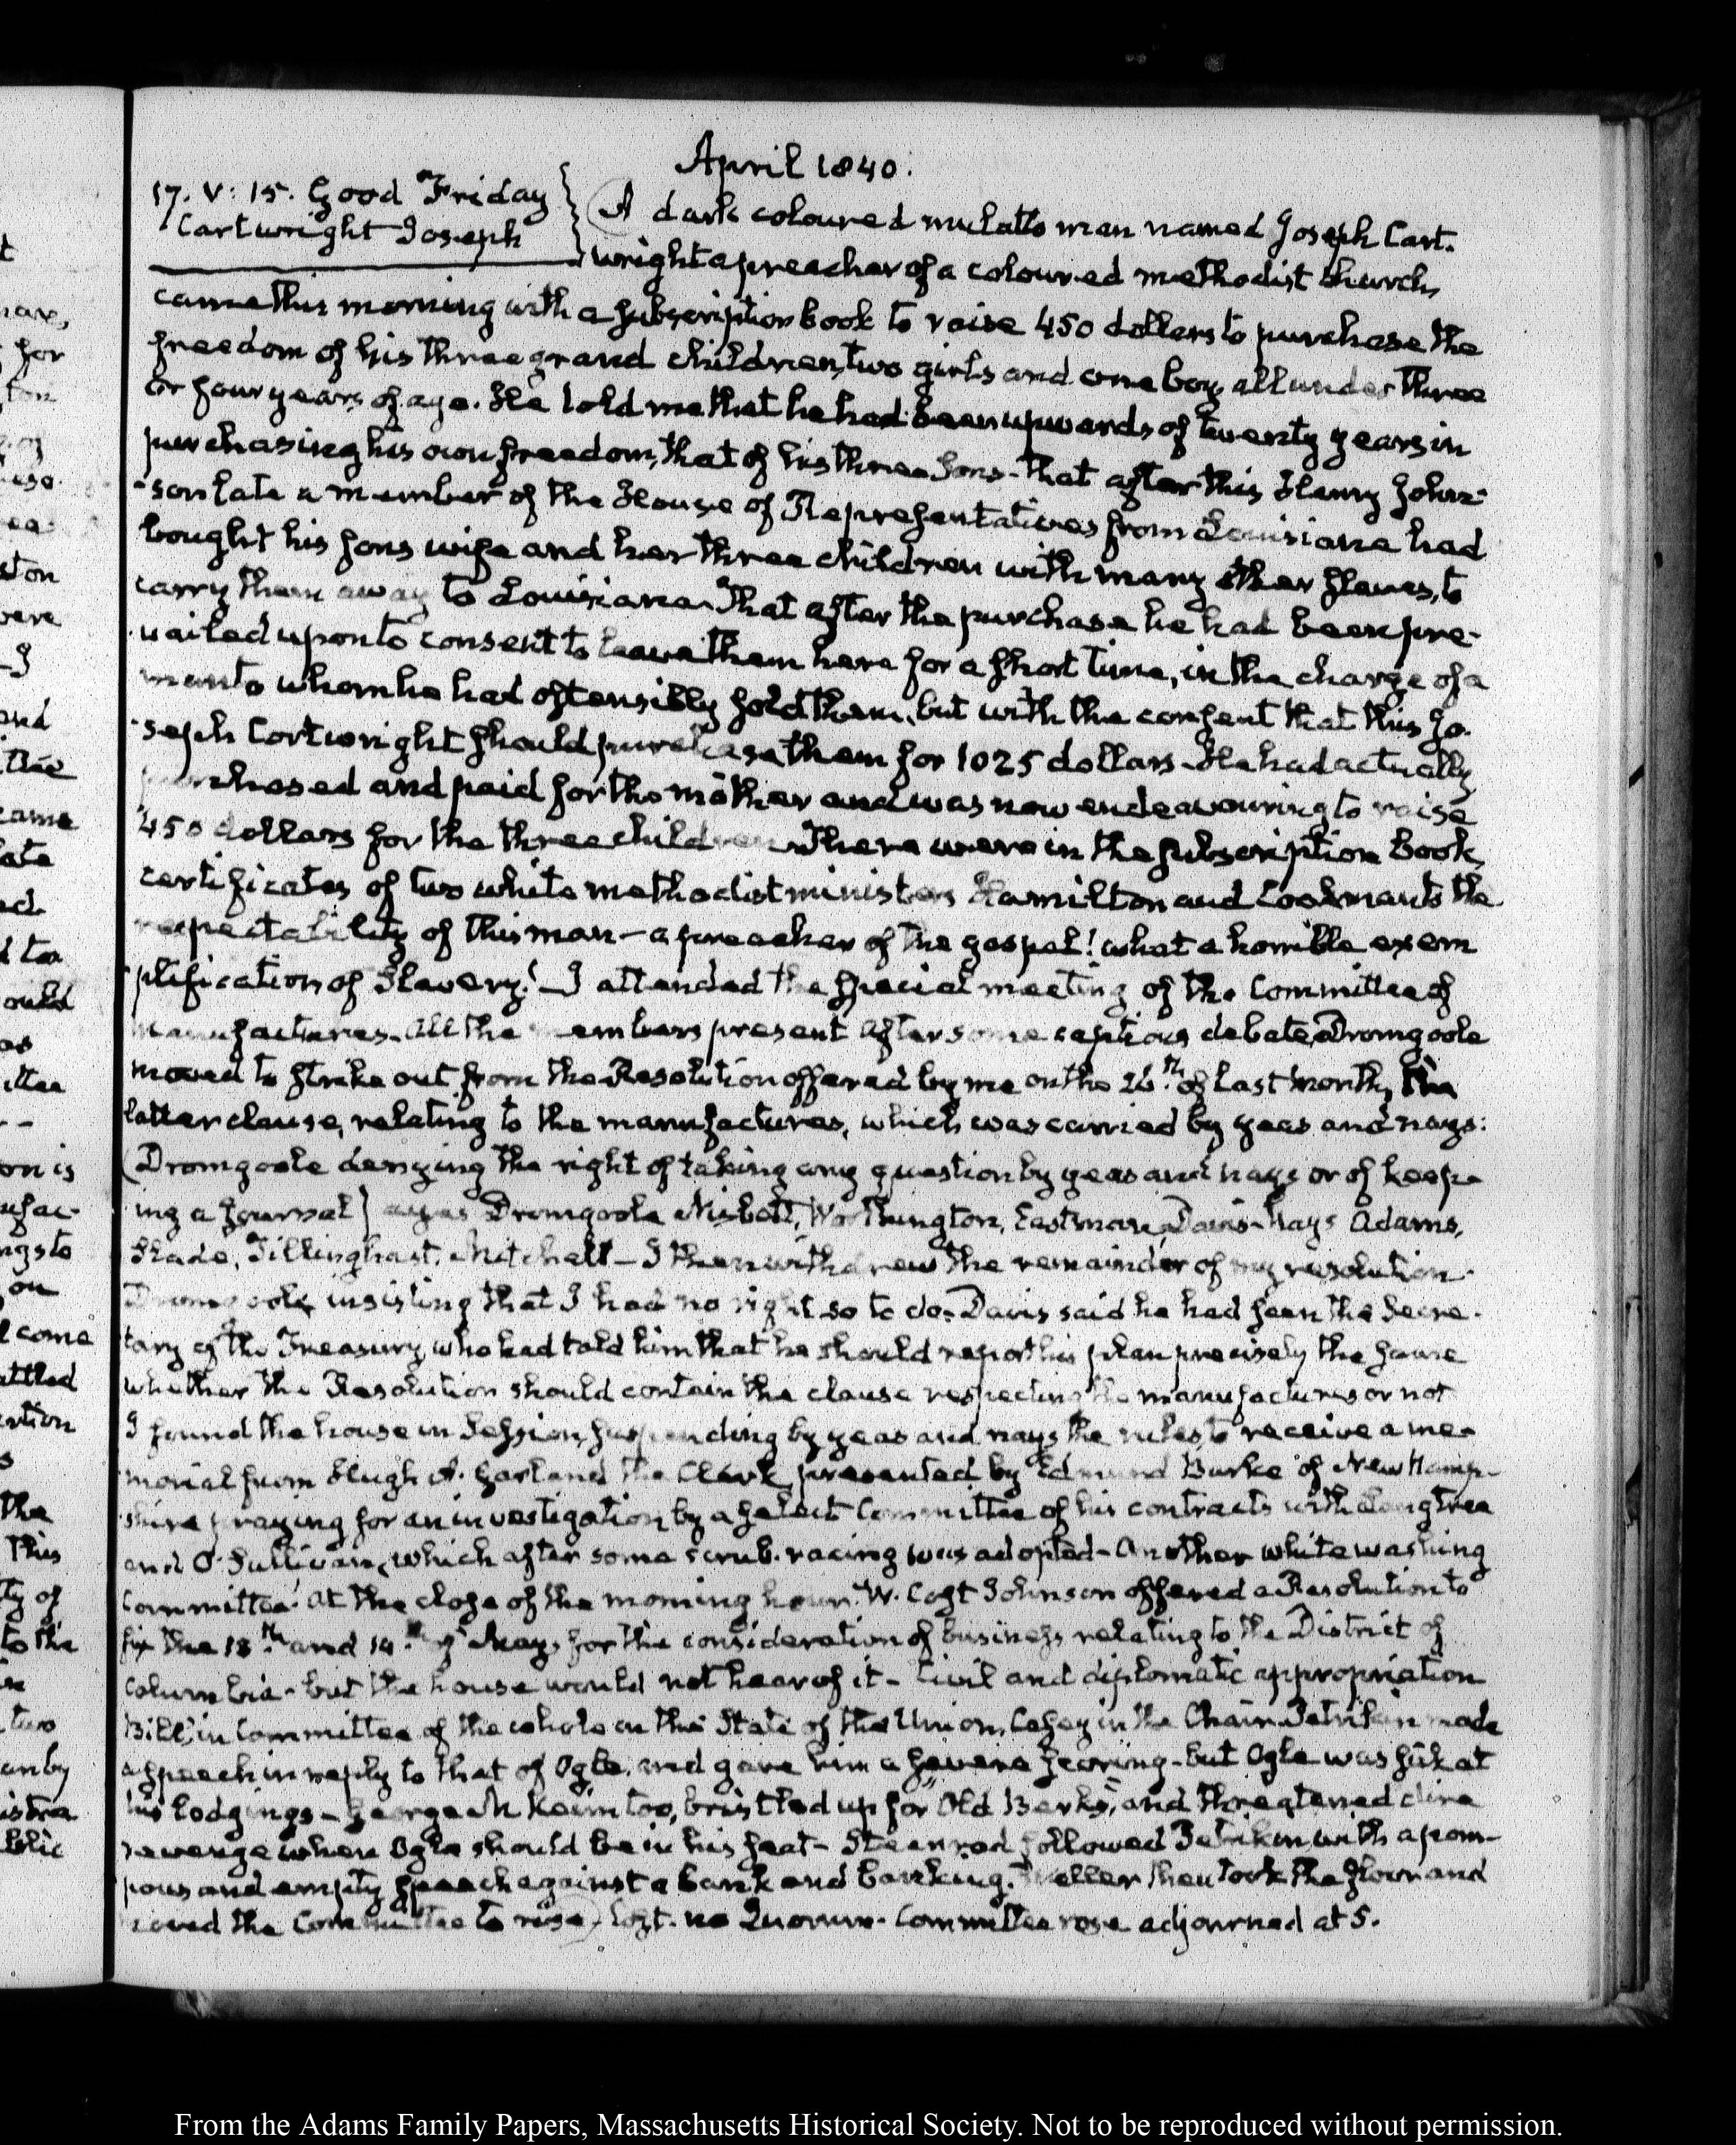 April 1840.
17. V: 15. Good Friday
Cartwright Joseph
A dark coloured mulatto man named Joseph Cart-
wright a preacher of a coloured methodist church,
came this morning with a subscription book to raise 450 dollars to purchase the
freedom of his three grand children, two girls and one boy, all under three
or four years of age. He told me that he had been upwards of twenty years in
purchasing his own freedom, that of his three Sons - that after this Henry John-
-son late a member of the House of Representatives from Louisiana had
bought his sons wife and her three children with many other slaves, to
carry them away to Louisiana. That after the purchase he had been pre-
-vailed upon to consent to leave them here for a short time, in the charge of a
man to whom he had ostensibly sold them, but with the consent that this Jo-
-seph Cartwright should purchase them for 1025 dollars - He had actually
purchased and paid for the mother and was now endeavouring to raise
450 dollars for the three children. There were in the subscription book,
certificates of two white methodist ministers Hamilton and Cookman to the
respectability of this man - a preacher of the gospel! what a horrible exem
plification of Slavery! - I attended the special meeting of the Committee of
Manufactures. All the members present after some captious debate, Dromgoole
moved to strike out from the Resolution offered by me on the 26th. of last month, the
latter clause, relating to the manufactures, which was carried by yeas and nays:
(Dromgoole denying the right of taking any question by yeas and nays or of keep-
ing a journal) ayes Dromgoole Nisbet, Worthington, Eastman, Davis - Nays Adams,
Slade, Tillinghast, Mitchell - I then withdrew the remainder of my resolution.
Dromgoole insisting that I had no right so to do. Davis said he had seen the Secre-
tary of the Treasury, who had told him that he should report his plan precisely the same
whether the Resolution should contain the clause respecting the manufactures or not
I found the house in Session, suspending by yeas and nays the rules to receive a me-
morial from Hugh A. Garland the Clerk, presented by Edmund Burke of New Hamp-
shire praying for an investigation by a select Committee of his contracts with Langtree
and O'Sullivan, which after some scrub-racing was adopted - Another white washing
Committee. At the close of the morning hour. W. Cost Johnson offered a Resolution to
fix the 13th. and 14th. of May, for the consideration of business relating to the District of
Columbia - but the house would not hear of it - Civil and diplomatic appropriation
Bill, in Committee of the whole on the State of the Union, Casey in the Chair. Petrikin made
a speech in reply to that of Ogle, and gave him a severe - but Ogle was sick at
his lodgings - George M Keim too, bristled up for "Old Berks", and threatened dire
revenge when Ogle should be in his seat - Steenrod followed Petrikin with a pom-
pous and empty speech against a bank and banking. Weller then took the floor and
moved the Committee to rise no Quorum. Committee rose adjourned at 5.
From the Adams Family Papers, Massachusetts Historical Society. Not to be reproduced without permission.